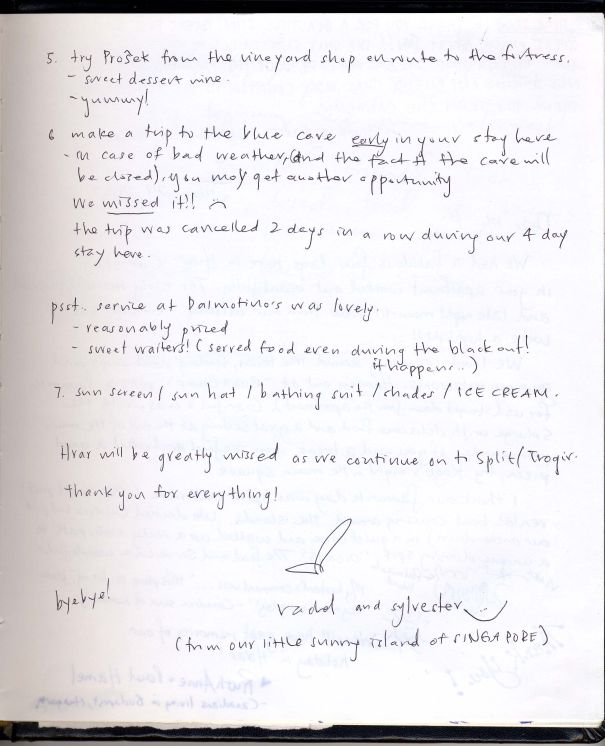 5. try Prošek from the vineyard shop enroute to the fortress.
- sweet dessert wine.
- yummy!
6 make a trip to the blue cave early in your stay here
- in case of bad weather, (and the fact the cave will
be closed), you may get another opportunity
We missed it!! :(
the trip was cancelled 2 days in a row during our 4 day
stay here.
psst.. service at Dalmatino's was lovely.
- reasonably priced
- sweet waiters! (served food even during the blackout!
it happens..)
7. sun screen / sun hat / bathing suit / shades / ICE CREAM.
Hvar will be greatly missed as we continue on to Split/Trogir.
thank you for everything!
byebye!
and sylvester
(from our little sunny island of SINGAPORE)